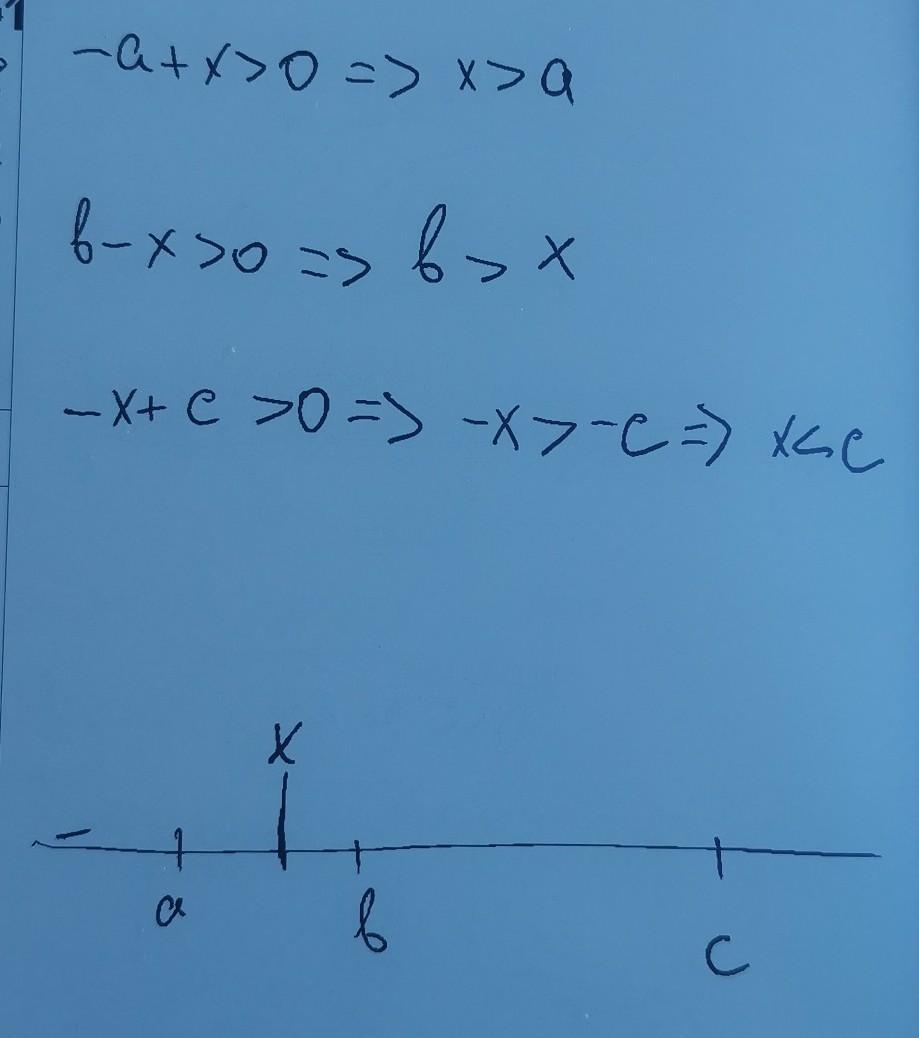 -a+x>0 => x>a
b-x>0 => b>x
-x+c>0 => -x>-c => x<c
x
a b c